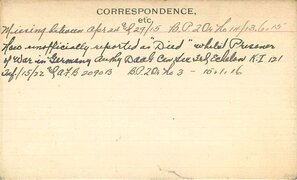 CORRESPONDENCE,
etc,
Missing between Apr 24 & 29/15 B.P.2Dr. No 14/13.6.15
Now unofficially reported as "Died" whilst Prisoner
of War in Germany Auth Cen 3rd Echelon K.I 121
15/22 & A.F.B 2090B B.P.2Dr No 3 - 10.1.16